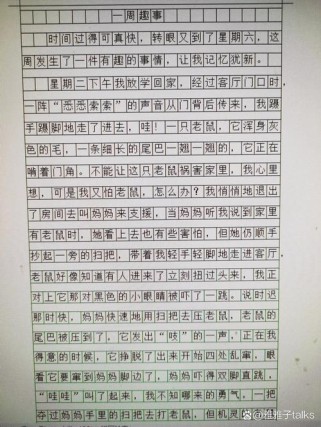 一周趣事
时间过得可真快，转眼又到了星期六，这
周发生了一件有趣的事情，让我记忆犹新。
星期二下午我放学回家，经过客厅门口时，
一阵“悉悉索索”的声音从门背后传来，我蹑
手蹑脚地走了进去，哇！一只老鼠，它浑身灰
色的毛，一条细长的尾巴一翘一翘的，它正在
啃着门角。不能让这只老鼠祸害家里，我心里
想，可是我又怕老鼠，怎么办？我悄悄地退出
了房间去叫妈妈来支援，当妈妈听我说到家里
有老鼠时，她看上去也有些害怕，但她仍顺手
抄起一旁的扫把，带着我轻手轻脚地走进客厅，
老鼠好像知道有人进来了立刻扭过头来，我正
对上它那对黑色的小眼睛被吓了一跳。说时迟
那时快，妈妈快速地用扫把去压老鼠，老鼠的
尾巴被压到了，它发出“吱”的一声，正在我
得意的时候，它挣脱了出来开始四处乱窜，眼
看它要窜到妈妈脚边了，妈妈吓得双脚直跳，
“哇哇”叫了起来，我不知哪来的勇气，一把
夺过妈妈手里的扫把去打老鼠，但机灵
@堆堆子talks